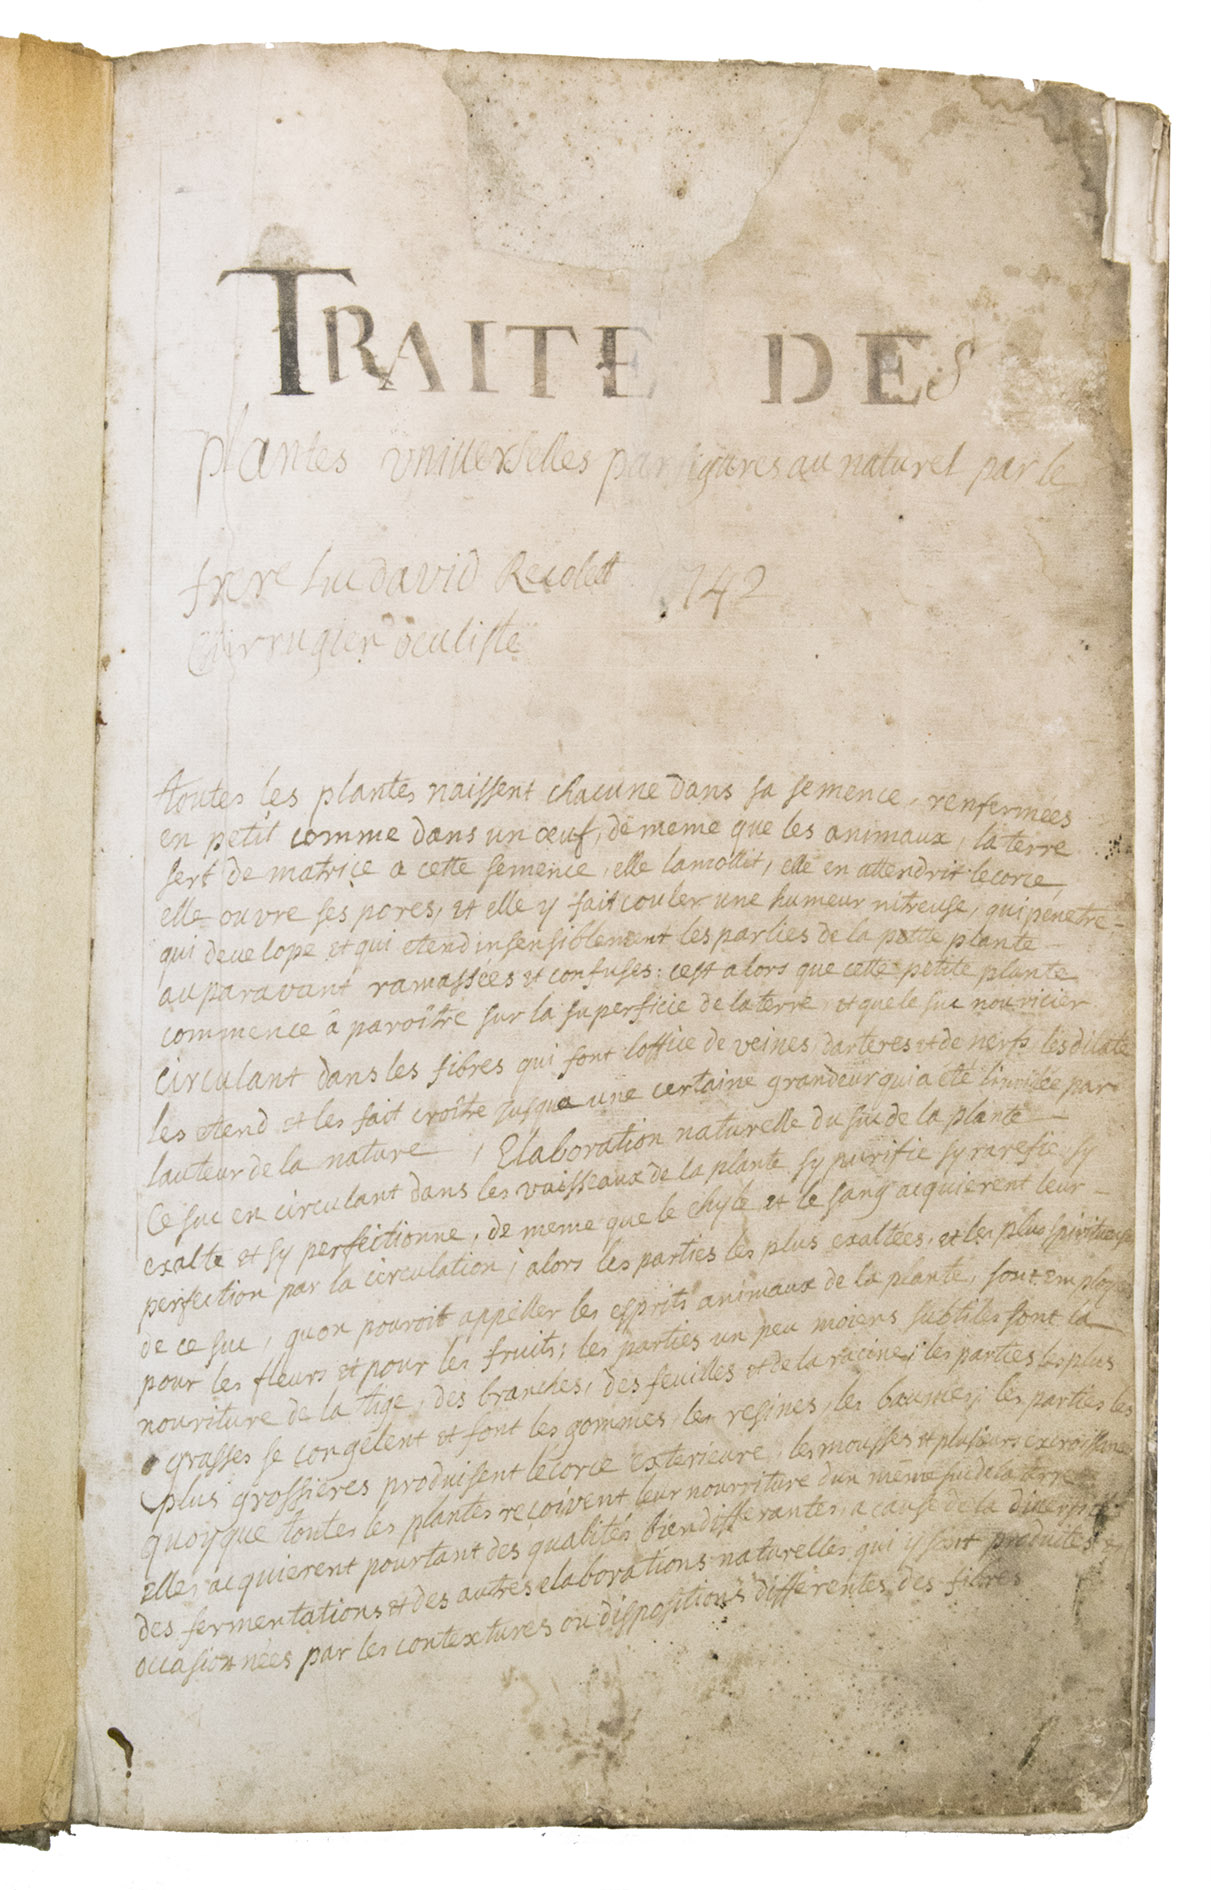 TRAITE DES
plantes vniuerselles par figures au naturel par le
frere luc david Recolet 742
Chirrugien oculiste
toutes les plantes naissent chacune dans sa semence, renfermées
en petit comme dans un œuf, de meme que les animaux, la terre
sert de matrice a cette semence, elle lamollit, elle en attendrit lecorce
elle ouvre ses pores, et elle y fait couler une humeur nitreuse, qui penetre -
qui deuelope et qui etend insensiblement les parties de la petite plante
auparavant ramassées et confuses: cest alors que cette petite plante
commence â paroître sur la superficie de la terre et que le suc nouricier
circulant dans les fibres qui font loffice de veines, darteres et de nerfs, les dilate
les etend et les fait croître jusqua une certaine grandeur qui a été limitée par
lauteur de la nature , Elaboration naturelle du suc de la plante
Ce suc en circulant dans les vaisseaux de la plante sy purifie sy rarefie sy
exalte et sy perfectionne, de meme que le chyle et le sang acquierent leur -
perfection par la circulation; alors les parties les plus exaltées, et les plus spiritueuses
de ce suc, quon pouroit appeller les esprits animaux de la plante, sont employ
pour les fleurs et pour les fruits; les parties un peu moiens subtiles sont la
nouriture de la tige, des branches, des feuilles et de la racine; les parties les plus
grasses se congêlent et font les gommes, les resines, les baumes; les parties les
plus grossieres produisent lécorce exterieure, les mousses et plusieurs excroissances
quoyque toutes les plantes reçoivent leur nourriture dun même suc de la terre
elles acquierent pourtant des qualités bien differantes, a cause de la diversité
des fermentations et des autres elaborations naturelles qui y sont produites et
occasionnées par les contextures ou dispositions differentes des fibres